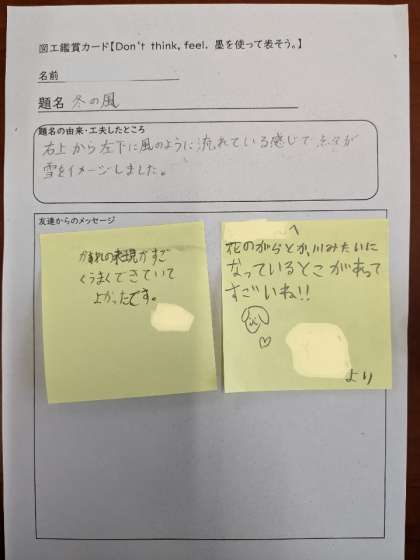 図工鑑賞カード【Don't think, feel. 墨を使って表そう。】
名前
題名 冬の風
題名の由来・工夫したところ
右上から左下に風のように流れている感じで点々が
雪をイメージしました。
友達からのメッセージ
ながれの表現がすご
くうまくできていて
よかったです。
へ
花のがらとか、川みたいに
なっているとこがあって
すごいね!!
より